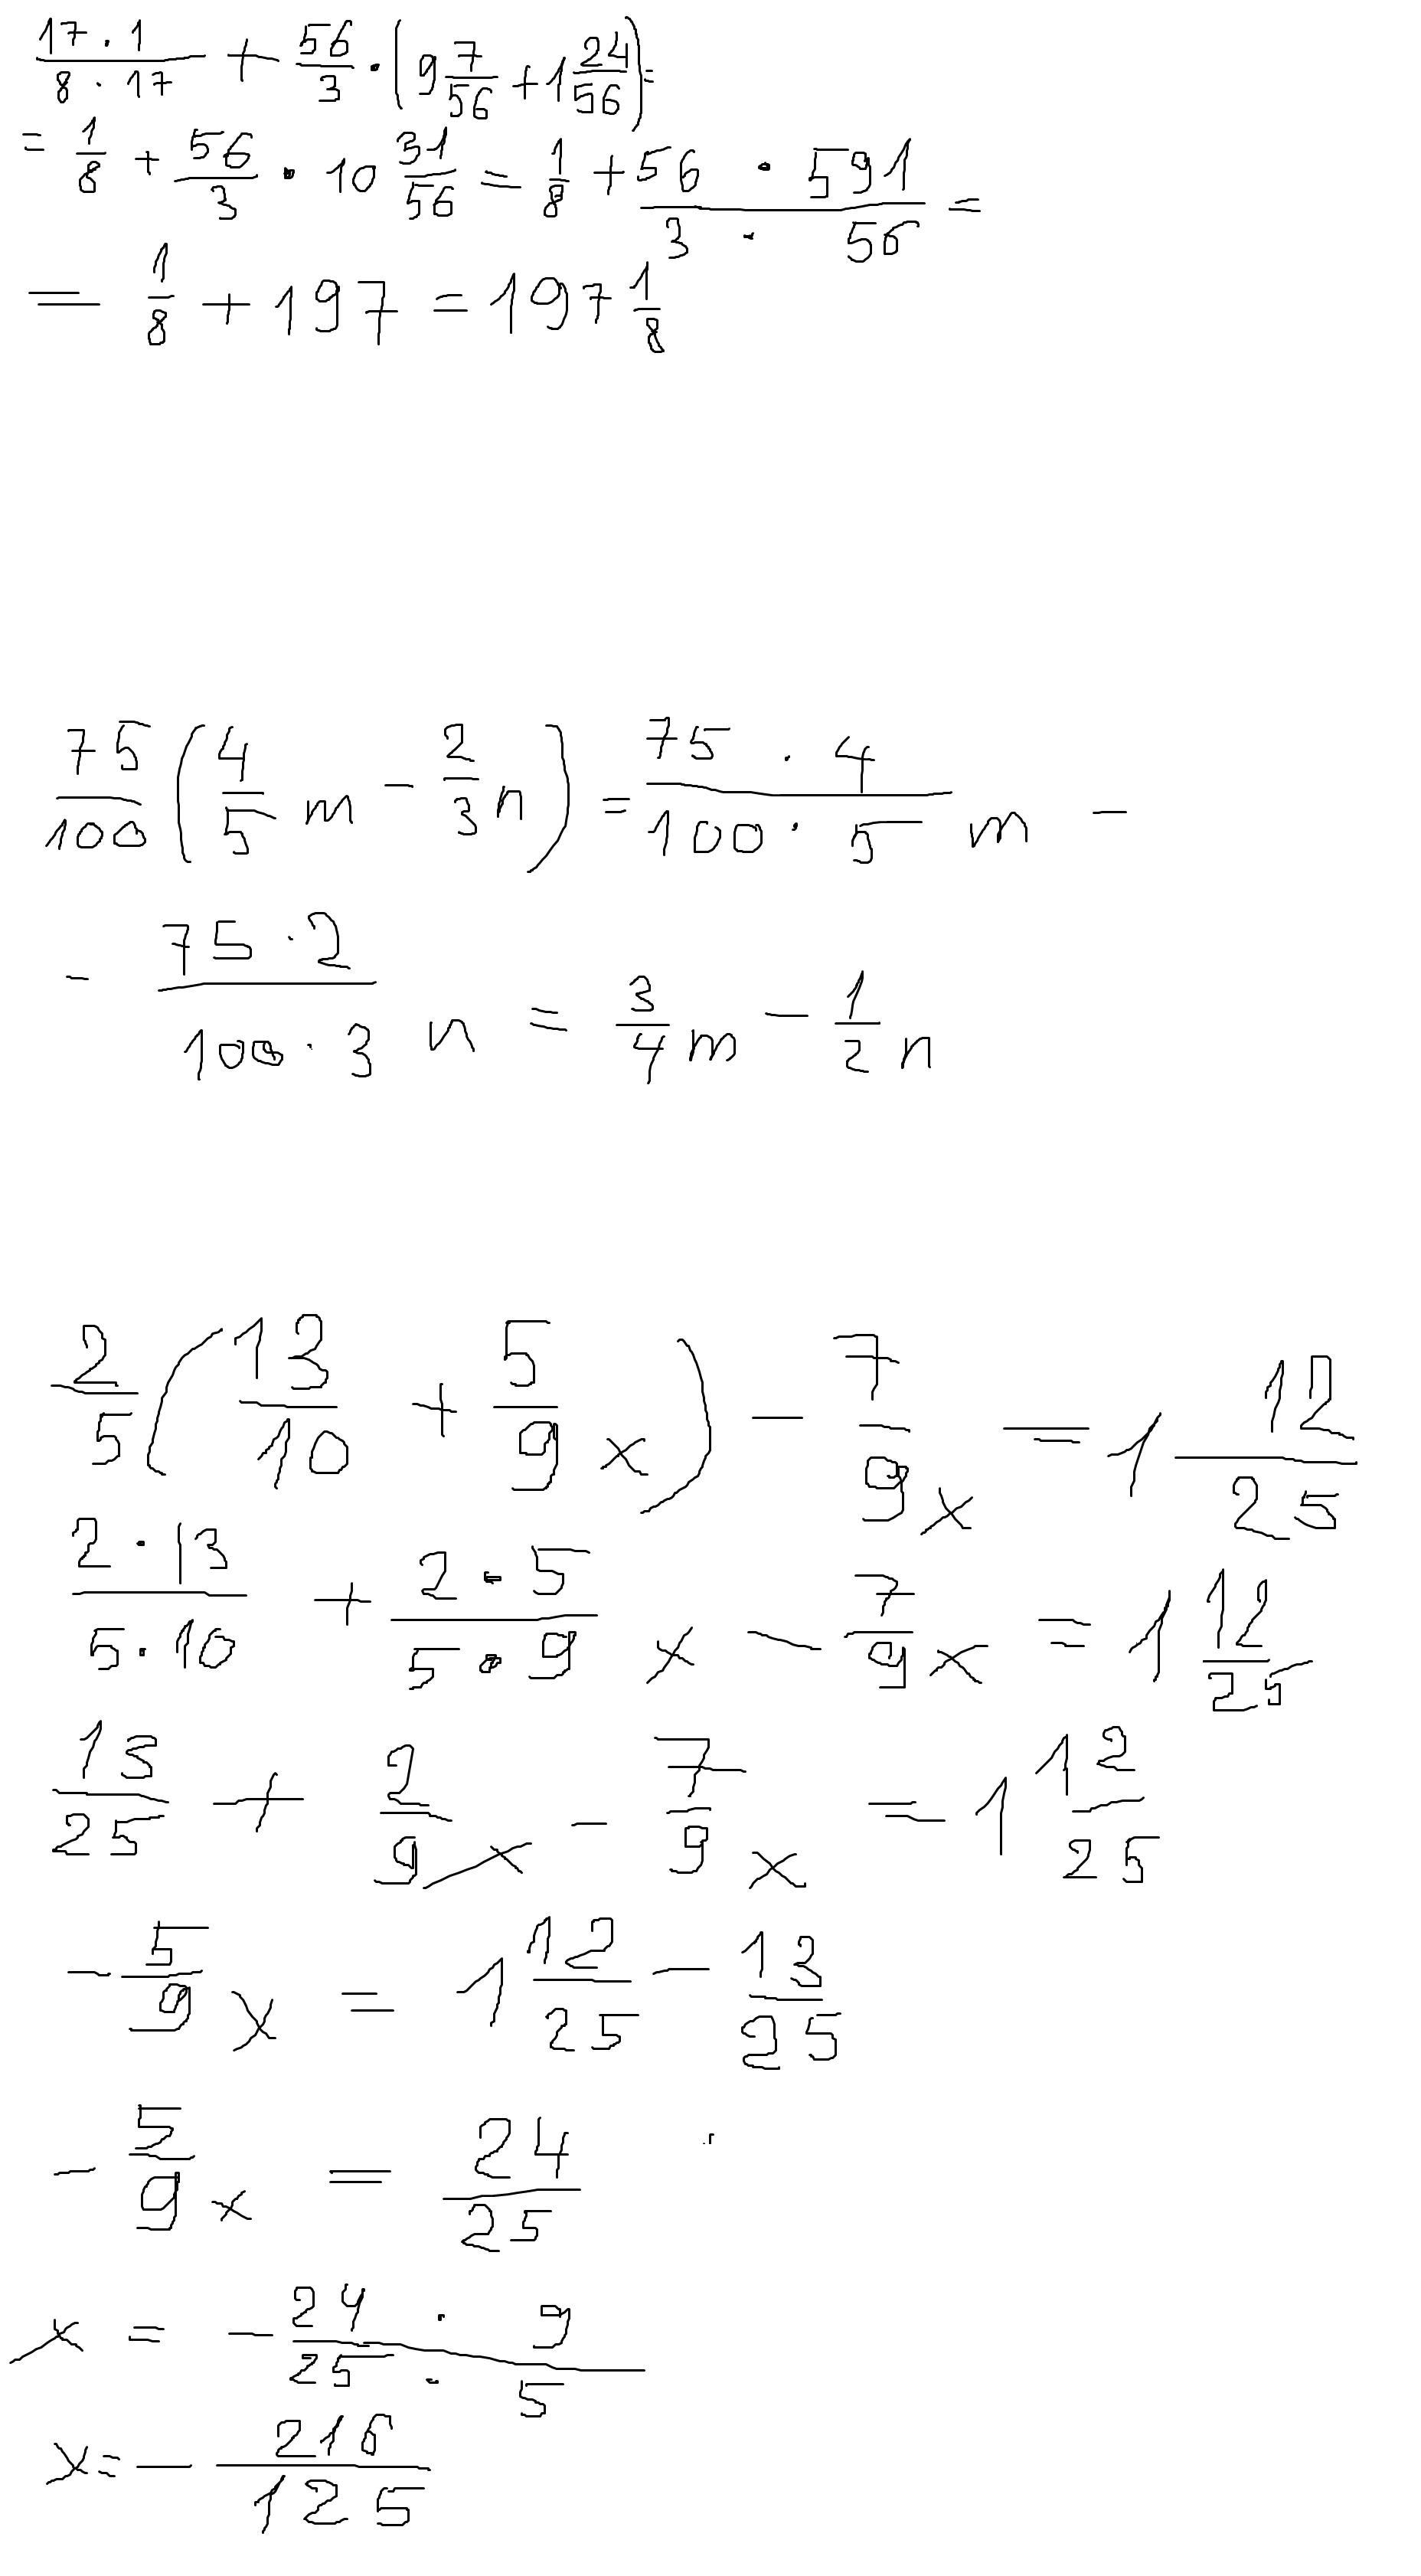 17·1/8·17 + 56/3 · (9 7/56 + 1 24/56) =
= 1/8 + 56/3 · 10 31/56 = 1/8 + 56 · 591/3 · 56 =
= 1/8 + 197 = 197 1/8
75/100 (4/5 m - 2/3 n) = 75 · 4/100 · 5 m -
- 75 · 2/100 · 3 n = 3/4 m - 1/2 n
2/5 (13/10 + 5/9 x) - 7/9 x = 1 12/25
2 · 13/5 · 10 + 2 · 5/5 · 9 x - 7/9 x = 1 12/25
13/25 + 2/9 x - 7/9 x = 1 12/25
- 5/9 x = 1 12/25 - 13/25
- 5/9 x = 24/25
x = - 24 · 9/25 · 5
x = - 216/125